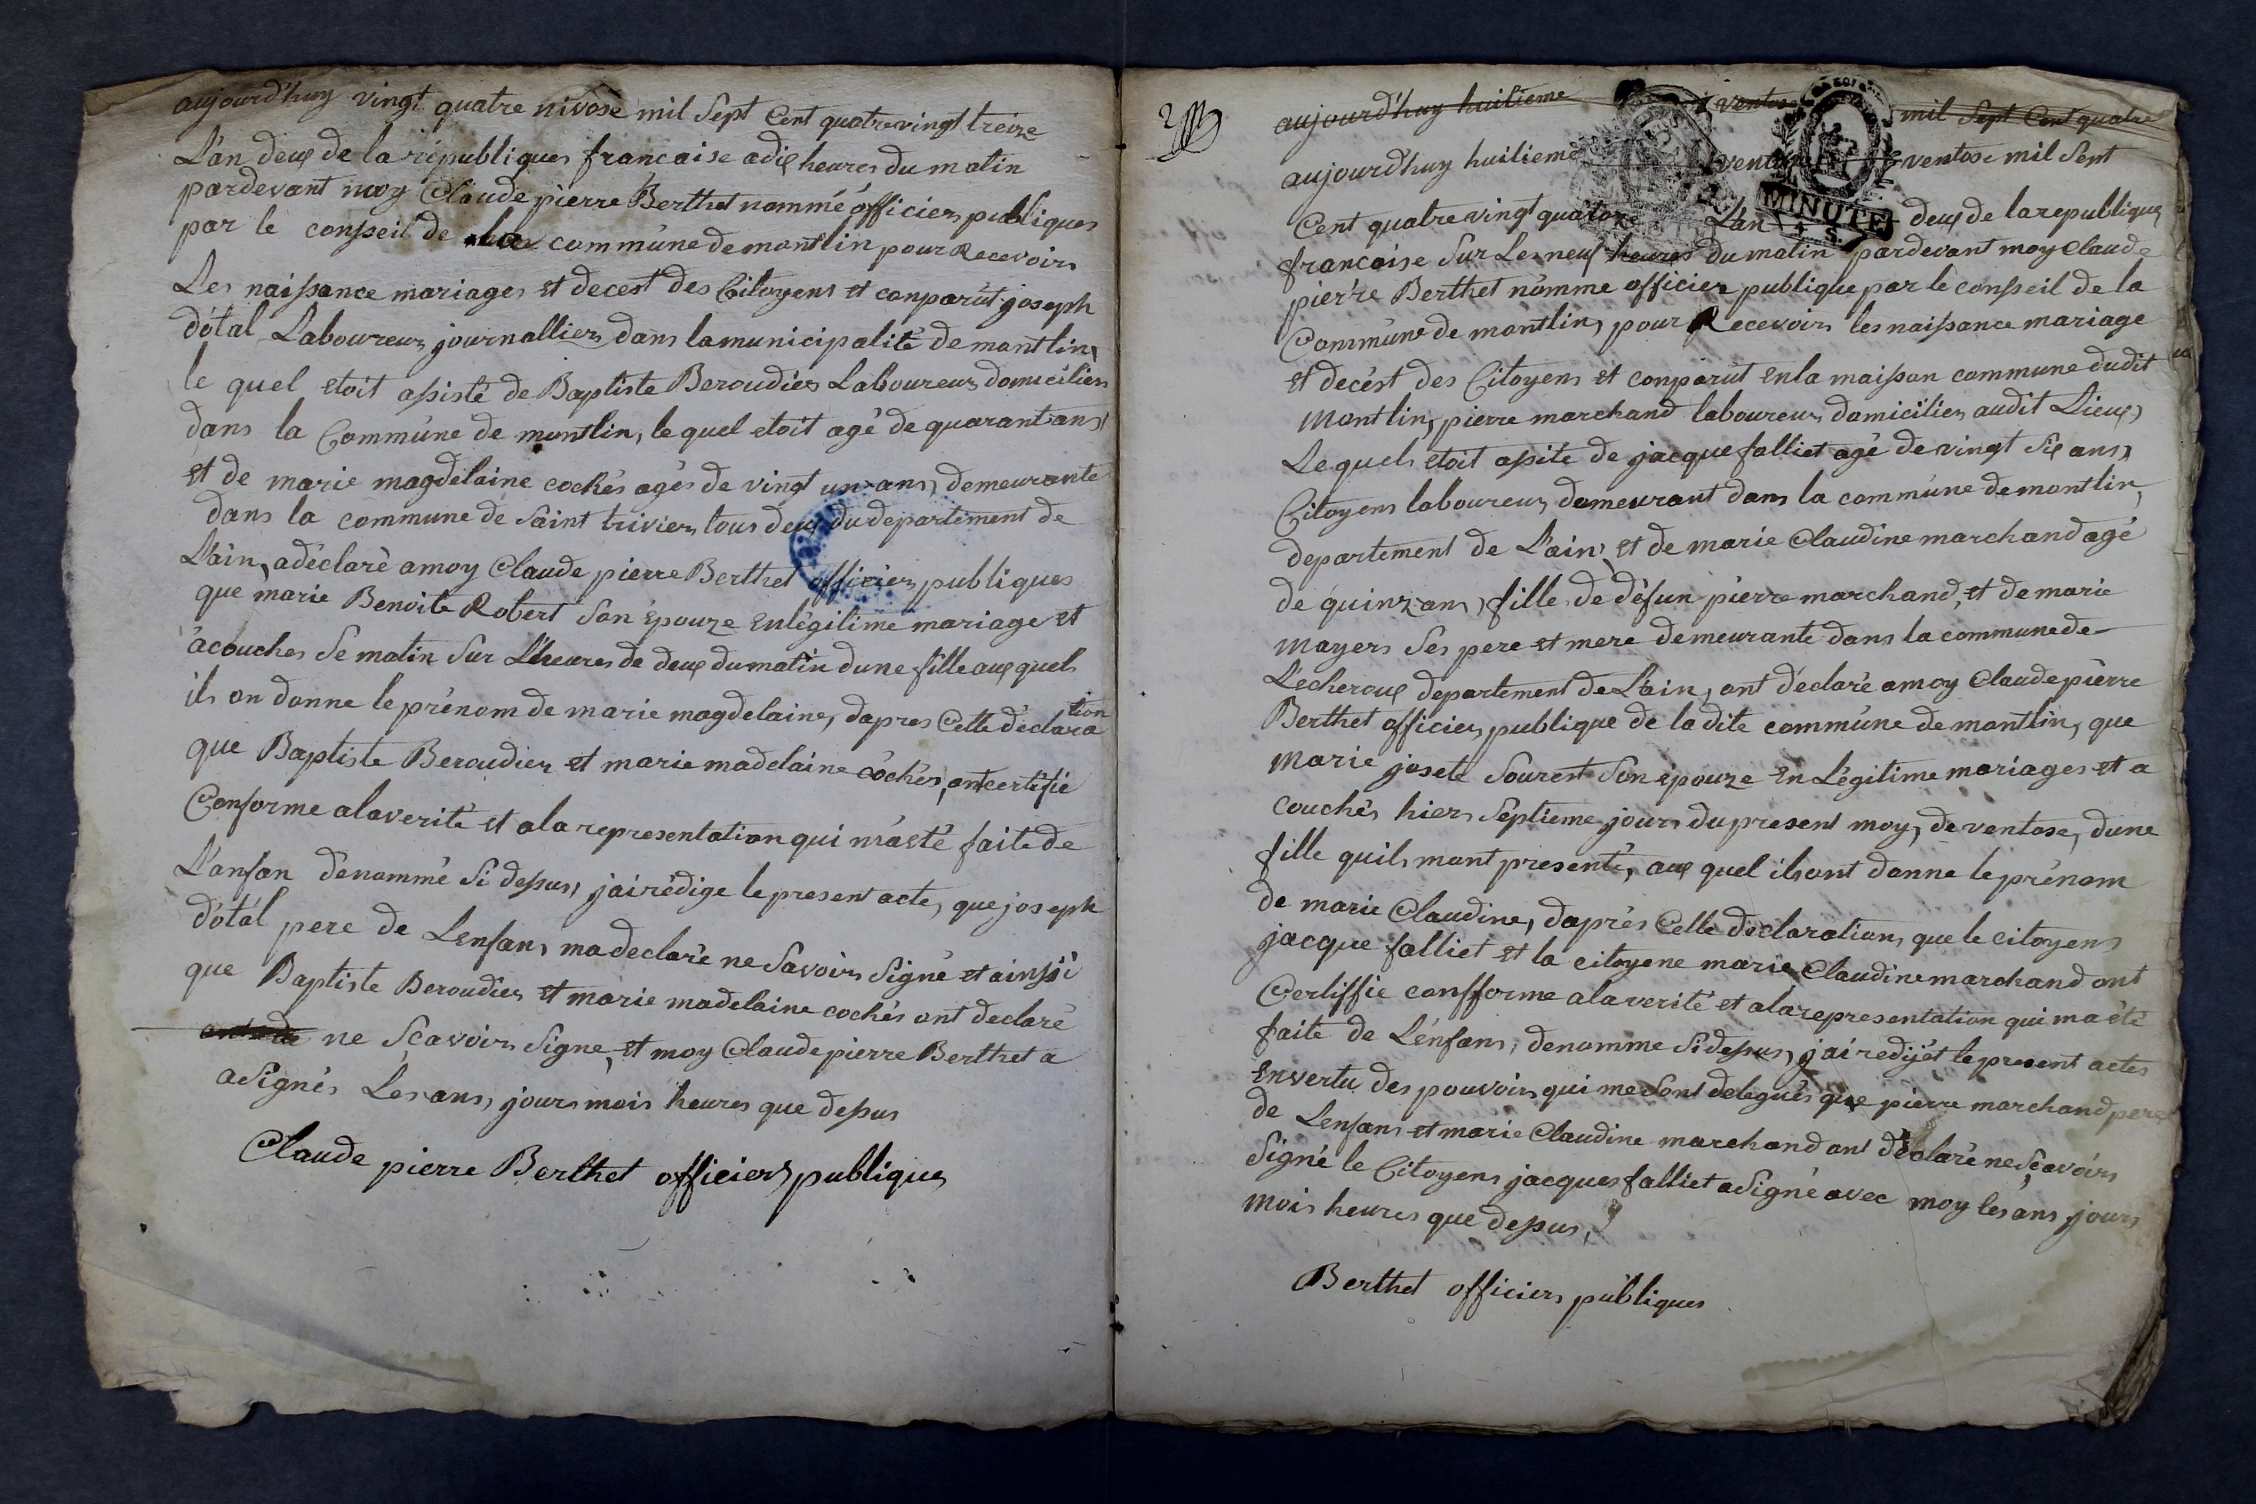 aujourd'huy vingt quatre nivose mil Sept Cent quatrevingt treize
L'an deux de la républiques francaise a dix heures du matin
pardevant moy Claude pierre Berthet nommé officiers publiques
par le conseil de la commune de montlin pour Recevoirs
Les naissance mariages et decest des Citoyens et conparut joseph
dotal Laboureurs journalliers dans la municipalité de montlin,
le quel etoit assisté de Baptiste Beroudier Laboureur domicilier
dans la Commune de montlin, le quel etoit agé de quarant ans
et de marie magdelaine cochés agés de vingt un ans, demeurante
dans la commune de Saint trivier tous deux du departement de
L'ain, a déclaré a moy Claude pierre Berthet officiers publiques
que marie Benoite Robert Son épouze en légitime mariage et
acouches Se matin Sur L'heures de deux du matin dune fille aux quels
ils on donne le prénom de marie magdelaine, dapres Cette déclara
tion
que Baptiste Beroudier et marie madelaine cochés, ont certifié
Conforme a la verité et a la representation qui m'a eté faite de
L'anfan dénommé Si dessus, jai rédige le present acte, que joseph
dotal pere de Lenfans ma declaré ne Savoir Signé et ainssi
que Baptiste Beroudier et marie madelaine cochés ont declaré
ne Scavoir Signe, et moy Claude pierre Berthet a
a Signés Les ans, jours mois heures que dessus
Claude pierre Berthet officiers publiques
2
aujourd'huy huitieme ventose mil Sept Cent quatre
aujourd'huy huitieme ventose ventose mil Sept
Cent quatre vingt quatorze L'an deux de la republique
MINUTE
francaise Sur Les neuf heures du matin pardevant moy Claude
pierre Berthet nomme officier publique par le consseil de la
Commune de montlin, pour Recevoirs les naissance mariage
et decést des Citoyens et conparut en la maisson commune dudit
montlin, pierre marchand laboureurs domicilier audit Lieux
Lequels etoit assité de jacque falliet agé de vingt Six ans,
Citoyens laboureur demeurant dans la commune de montlin,
departement de L'ain, et de marie Claudine marchand agé
de quinz ans, fille de défun pierre marchand, et de marie
mayers Ses pere et mere demeurante dans la commune de
L'echeroux departement de L'ain, ont déclaré a moy Claude pierre
Berthet officiers publique de la dite commune de montlin, que
Marie josete Sourest Son épouze en Légitime mariages et a
couchés hiers Septieme jours du present moy, de ventose, dune
fille quils mont presenté, aux quel ils ont donne le prénom
de marie Claudine, daprés Cette déclaration, que le citoyens
jacque falliet et la citoyene marie Claudine marchand ont
Certiffie consfforme a la verité et a la representation qui ma été
faite de L'énfans, denomme Si dessus, j'ai redijét le present actes
en vertu des pouvoirs qui me Sont delegués que pierre marchand pere
de Lenfans et marie Claudine marchand ont déclaré ne Scavoirs
Signé le Citoyens jacques falliet a Signé avec moy les ans, jours
mois heures que dessus,
Berthet officiers publiques